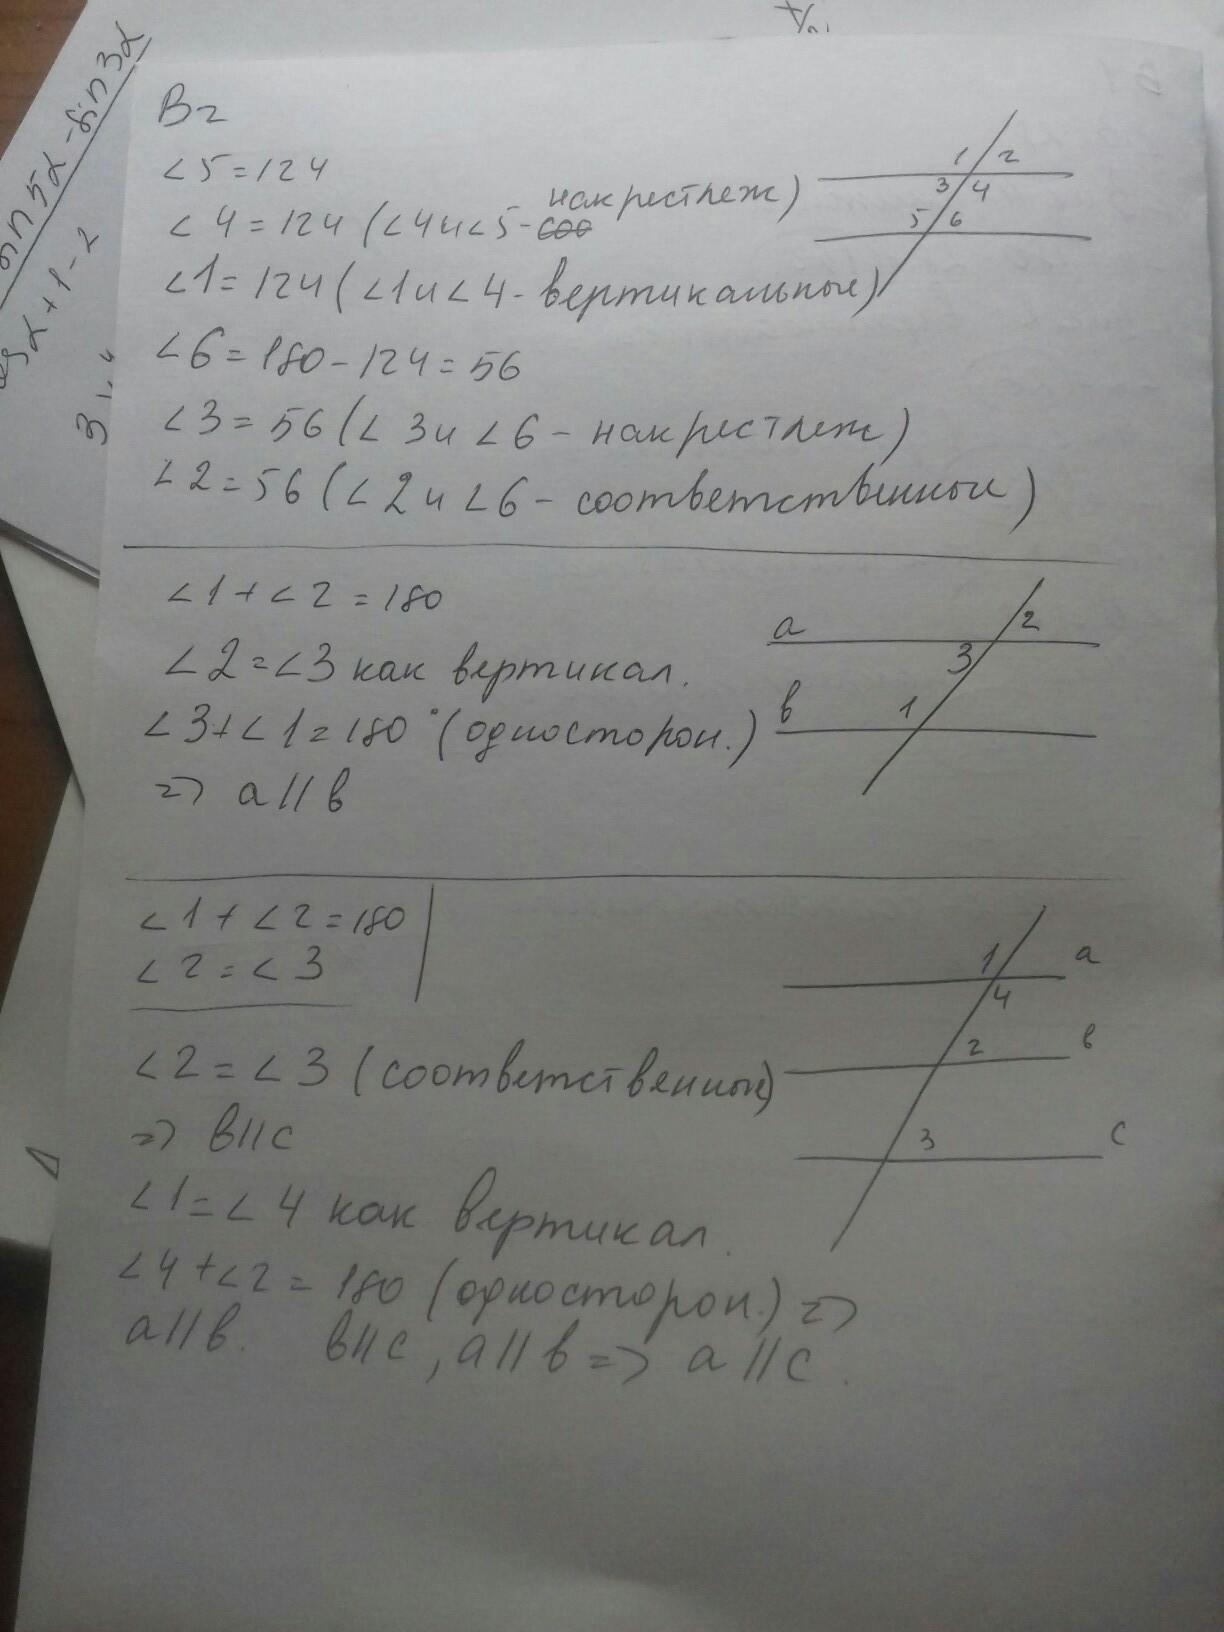 В2
∠5=124
∠4=124 (∠4и∠5- накрестлеж)
∠1=124 (∠1и∠4- вертикальные)
∠6=180-124=56
∠3=56 (∠3и∠6- накрестлеж)
∠2=56 (∠2и∠6- соответственные)
1 2
3 4
5 6
∠1+∠2=180
∠2=∠3 как вертикал.
∠3+∠1=180° (односторон.)
=> a||в
a 2
3
в 1
∠1+∠2=180
∠2=∠3
∠2=∠3 (соответственные)
=> в||c
∠1=∠4 как вертикал.
∠4+∠2=180 (односторон.) =>
a||в. в||c, a||в => a||c.
1 a
4
2 в
3 c
sin5α-sin3α